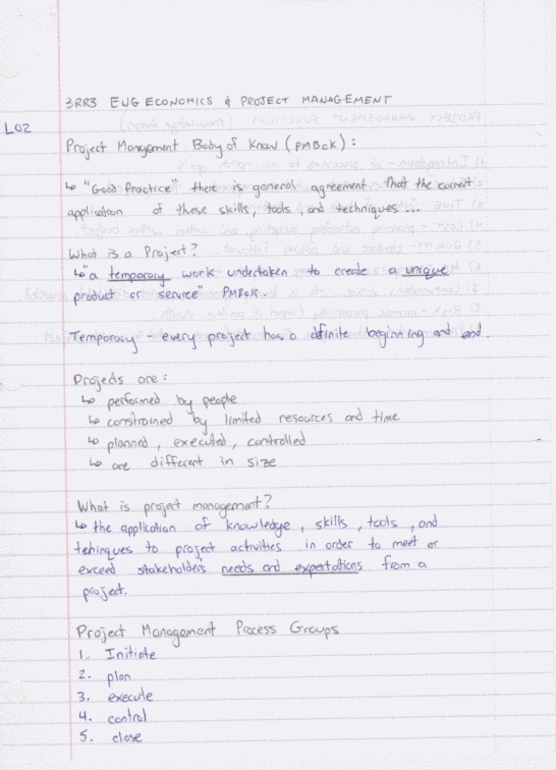 3RR3 ENG ECONOMICS & PROJECT MANAGEMENT
L02
Project Management Body of Know (PMBoK):
↳ "Good Practice" there is general agreement that the correct
application of these skills, tools, and techniques ...
What is a Project?
↳ "a temporary work undertaken to create a unique
product or service" PMBoK.
Temporary - every project has a definite beginning and end.
Projects are:
↳ performed by people
↳ constrained by limited resources and time
↳ planned, executed, controlled
↳ are different in size
What is project management?
↳ the application of knowledge, skills, tools, and
tehinques to project activities in order to meet or
exceed stakeholders needs and expectations from a
project.
Project Management Process Groups
1. Initiate
2. plan
3. execute
4. control
5. close